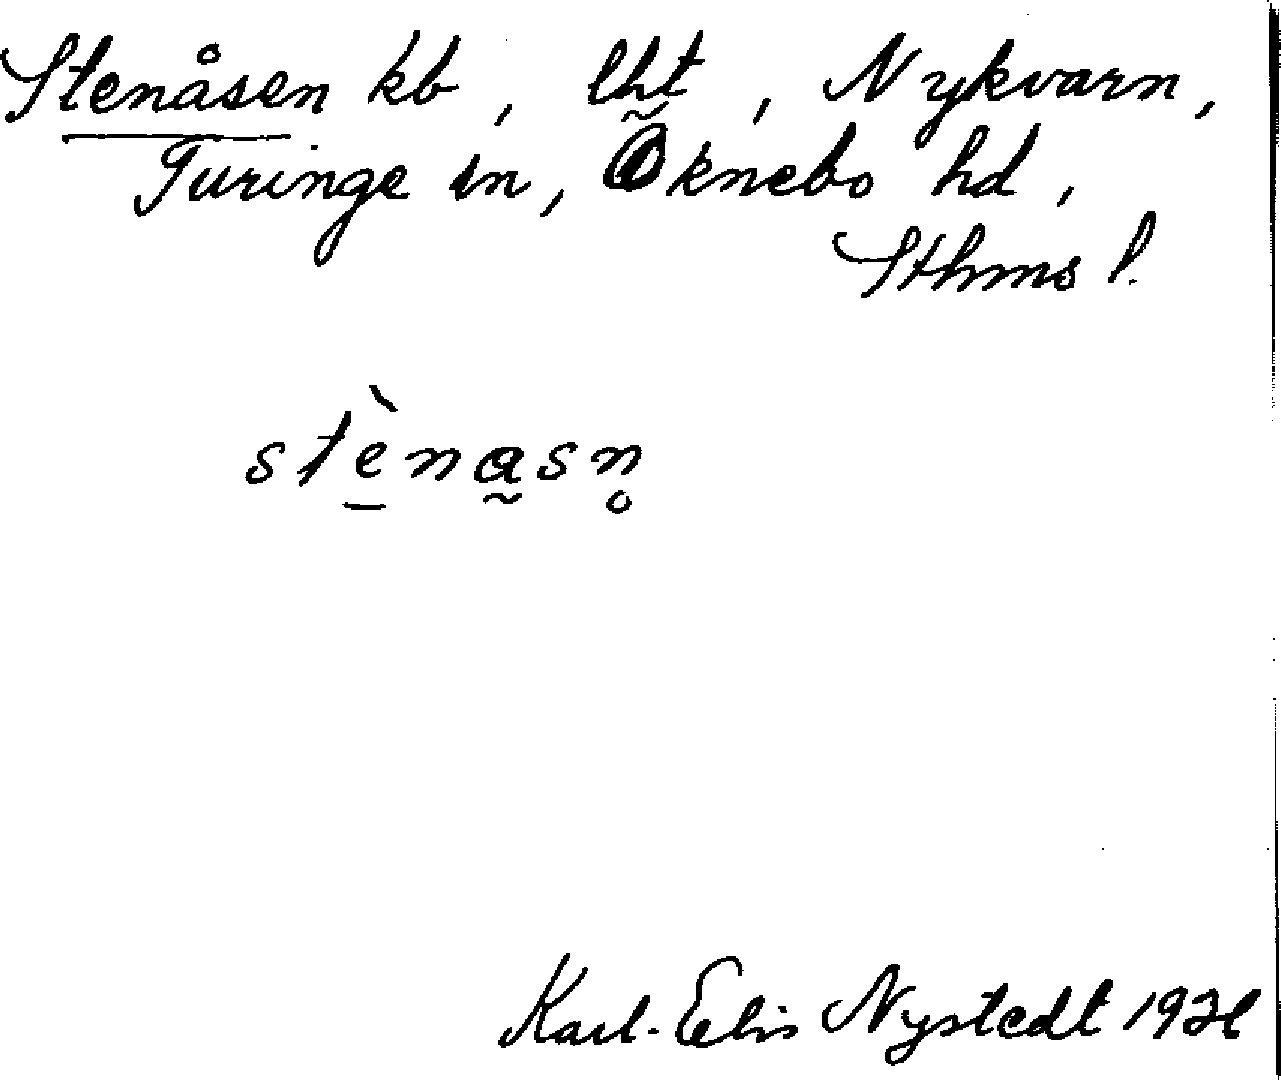 Stenåsen kb, lht, Nykvarn,
Turinge sn, Öknebo hd,
Sthms l.
stènasn̥
Karl-Elis Nystedt